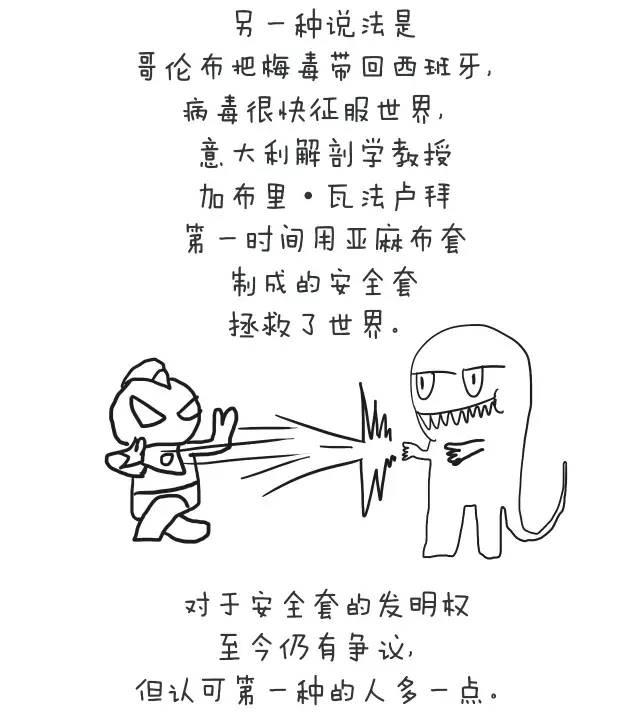 另一种说法是
哥伦布把梅毒带回西班牙,
病毒很快征服世界,
意大利解剖学教授
加布里·瓦法卢拜
第一时间用亚麻布套
制成的安全套
拯救了世界。
对于安全套的发明权
至今仍有争议,
但认可第一种的人多一点。